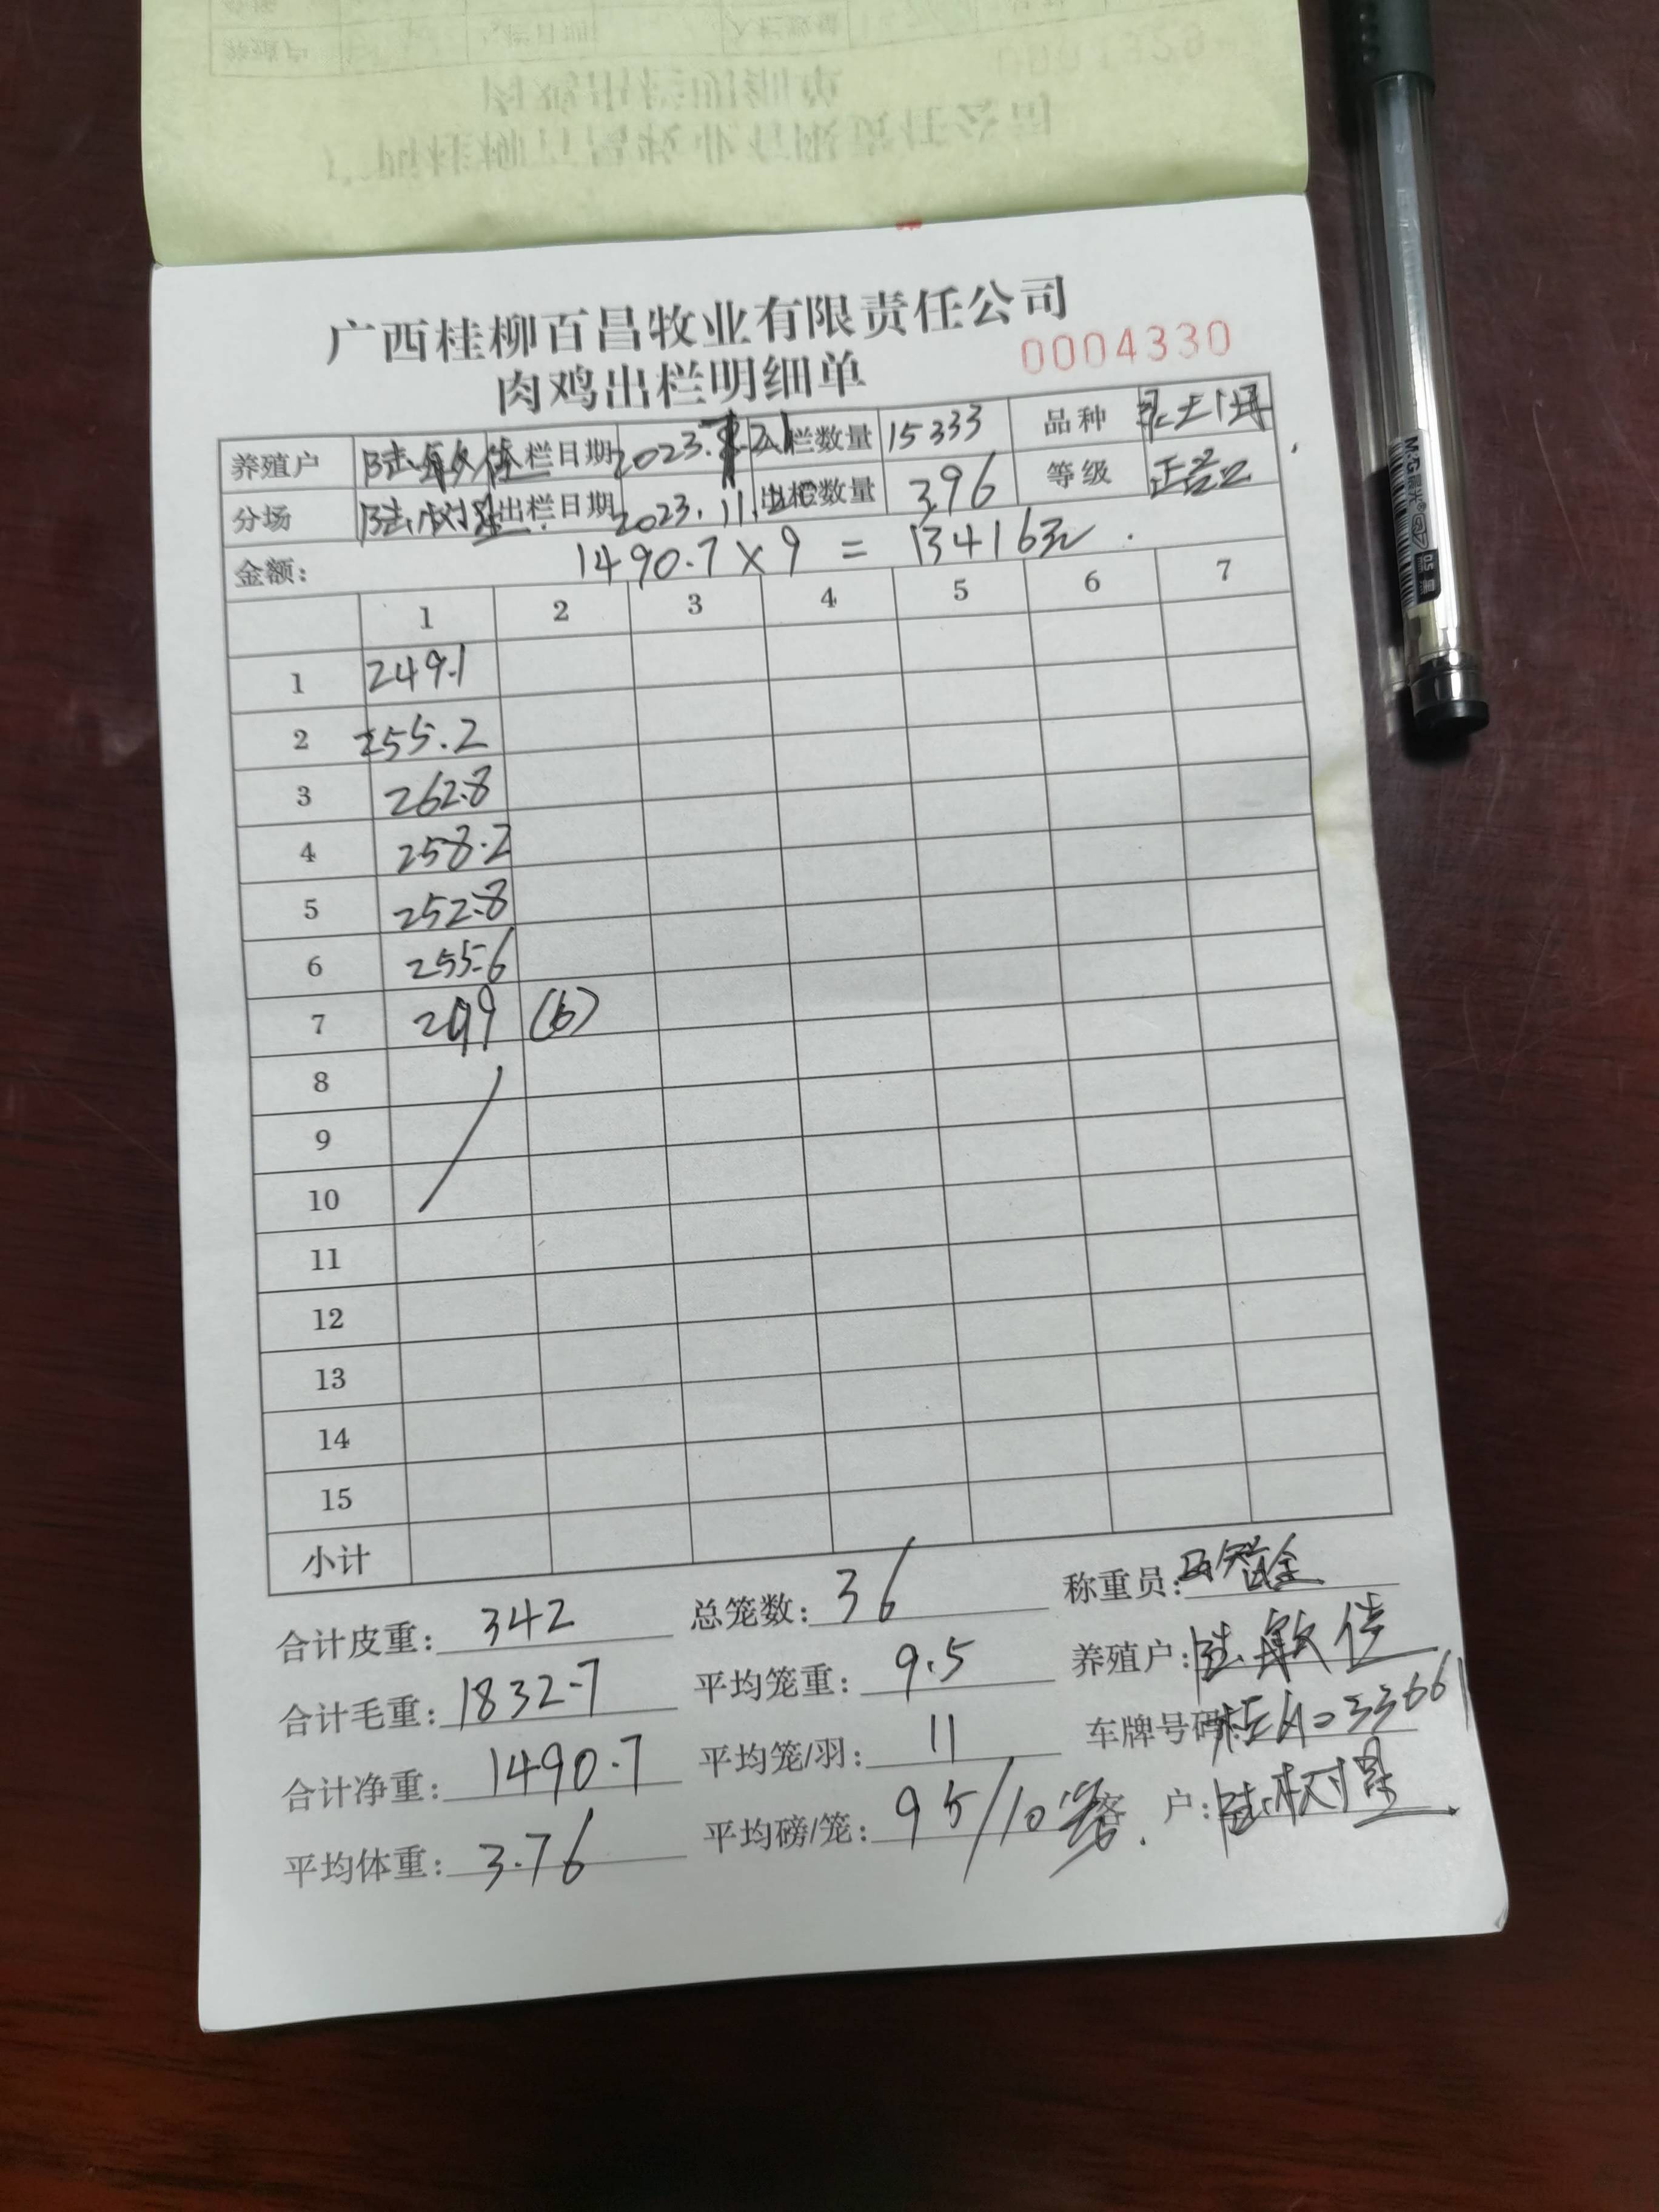 广西桂柳百昌牧业有限责任公司
肉鸡出栏明细单
0004330
养殖户 陆敏佳 入栏日期 2023. 21 入栏数量 15333 品种 土
分场 陆树 出栏日期 2023.11. 出栏数量 396 等级 正
金额: 1490.7×9 = 13416元.
1 2 3 4 5 6 7
1 249.1
2 255.2
3 262.8
4 258.2
5 252.8
6 255.6
7 299 (6)
8
9
10
11
12
13
14
15
小计
合计皮重: 342 总笼数: 36 称重员:
合计毛重: 1832.7 平均笼重: 9.5 养殖户: 陆敏佳
合计净重: 1490.7 平均笼/羽: 11 车牌号码 桂A·33661
平均体重: 3.76 平均磅/笼: 95/10笼. 客户: 陆树
M&G晨光
0.5 黑